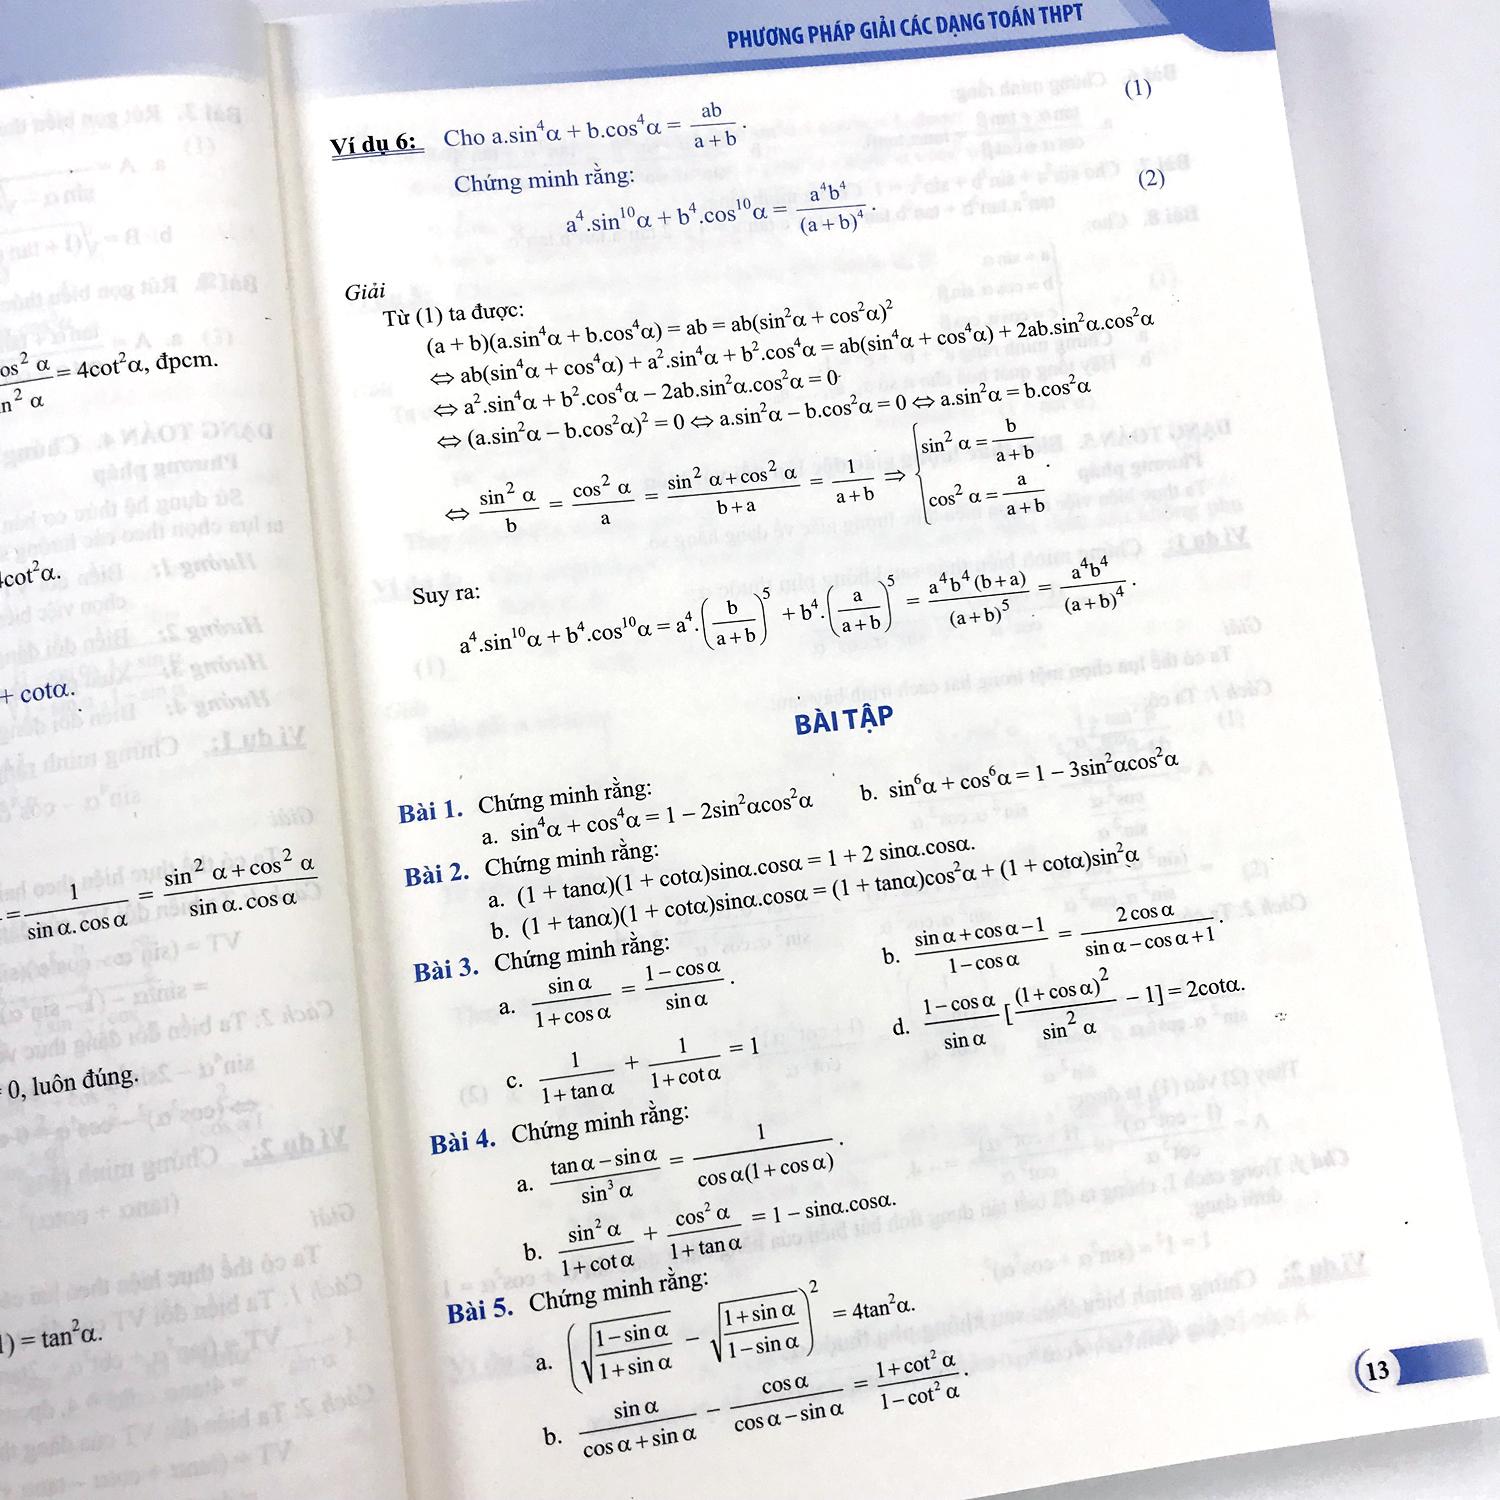 PHƯƠNG PHÁP GIẢI CÁC DẠNG TOÁN THPT
os² α / n² α = 4cot²α, đpcm.
cot²α.
+ cotα.
= 1 / sin α. cos α = sin² α + cos² α / sin α. cos α
= 0, luôn đúng.
) = tan²α.
Ví dụ 6: Cho a.sin⁴α + b.cos⁴α = ab / (a + b). (1)
Chứng minh rằng:
a⁴.sin¹⁰α + b⁴.cos¹⁰α = a⁴b⁴ / (a + b)⁴. (2)
Giải
Từ (1) ta được:
(a + b)(a.sin⁴α + b.cos⁴α) = ab = ab(sin²α + cos²α)²
⇔ ab(sin⁴α + cos⁴α) + a².sin⁴α + b².cos⁴α = ab(sin⁴α + cos⁴α) + 2ab.sin²α.cos²α
⇔ a².sin⁴α + b².cos⁴α – 2ab.sin²α.cos²α = 0
⇔ (a.sin²α – b.cos²α)² = 0 ⇔ a.sin²α – b.cos²α = 0 ⇔ a.sin²α = b.cos²α
⇔ sin² α / b = cos² α / a = (sin² α + cos² α) / (b + a) = 1 / (a + b) ⇒ { sin² α = b / (a + b) ; cos² α = a / (a + b) .
Suy ra:
a⁴.sin¹⁰α + b⁴.cos¹⁰α = a⁴.(b / (a + b))⁵ + b⁴.(a / (a + b))⁵ = a⁴b⁴(b + a) / (a + b)⁵ = a⁴b⁴ / (a + b)⁴.
BÀI TẬP
Bài 1. Chứng minh rằng:
a. sin⁴α + cos⁴α = 1 – 2sin²αcos²α b. sin⁶α + cos⁶α = 1 – 3sin²αcos²α
Bài 2. Chứng minh rằng:
a. (1 + tanα)(1 + cotα)sinα.cosα = 1 + 2 sinα.cosα.
b. (1 + tanα)(1 + cotα)sinα.cosα = (1 + tanα)cos²α + (1 + cotα)sin²α
Bài 3. Chứng minh rằng:
a. sin α / (1 + cos α) = (1 – cos α) / sin α. b. (sin α + cos α – 1) / (1 – cos α) = 2 cos α / (sin α – cos α + 1).
c. 1 / (1 + tan α) + 1 / (1 + cot α) = 1 d. (1 – cos α) / sin α [(1 + cos α)² / sin² α – 1] = 2cotα.
Bài 4. Chứng minh rằng:
a. (tan α – sin α) / sin³ α = 1 / cos α(1 + cos α).
b. sin² α / (1 + cot α) + cos² α / (1 + tan α) = 1 – sinα.cosα.
Bài 5. Chứng minh rằng:
a. (√((1 – sin α) / (1 + sin α)) – √((1 + sin α) / (1 – sin α)))² = 4tan²α.
b. sin α / (cos α + sin α) – cos α / (cos α – sin α) = (1 + cot² α) / (1 – cot² α).
13